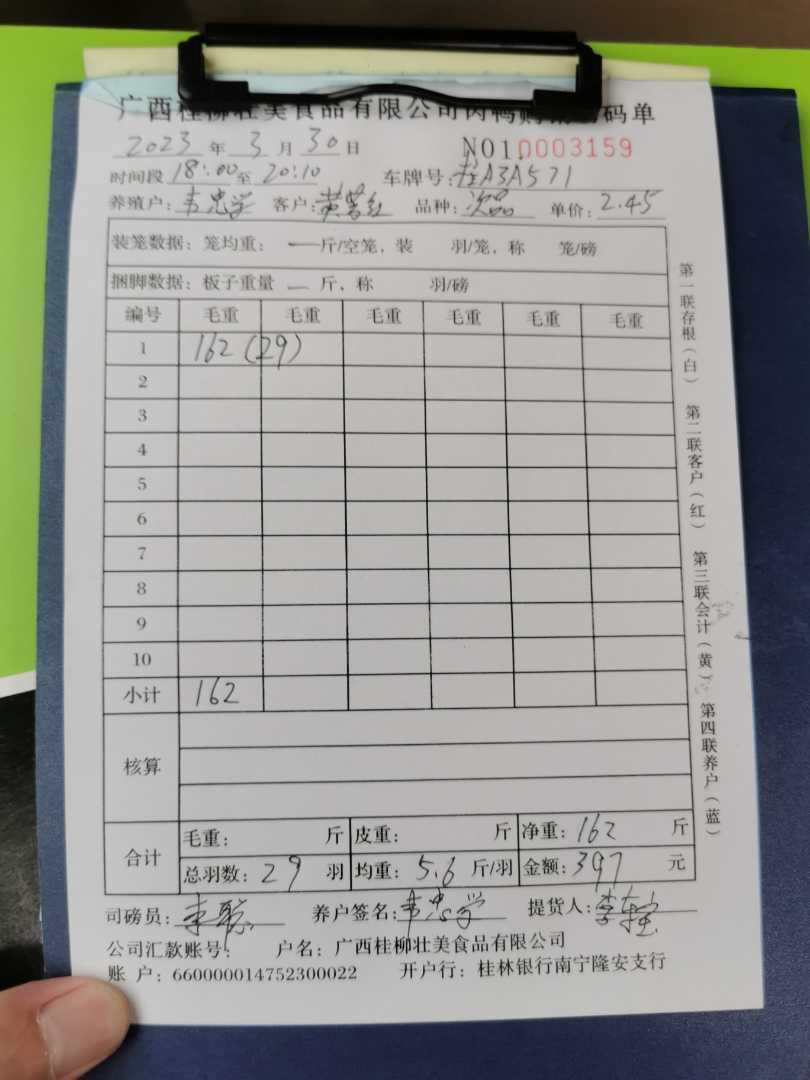 广西桂柳壮美食品有限公司肉鸭购销码单
2023年3月30日 NO1.0003159
时间段18:00至20:10 车牌号:桂A3A571
养殖户:韦忠学 客户: 品种:次品 单价:2.45
装笼数据:笼均重: —斤/空笼,装 羽/笼,称 笼/磅
捆脚数据:板子重量 —斤,称 羽/磅
编号 毛重 毛重 毛重 毛重 毛重 毛重
1 162(29)
2
3
4
5
6
7
8
9
10
小计 162
核算
合计 毛重: 斤 皮重: 斤 净重:162 斤
总羽数:29 羽 均重:5.6 斤/羽 金额:397 元
司磅员: 养户签名:韦忠学 提货人:
公司汇款账号: 户名:广西桂柳壮美食品有限公司
账 户:660000014752300022 开户行:桂林银行南宁隆安支行
第一联存根(白) 第二联客户(红) 第三联会计(黄) 第四联养户(蓝)